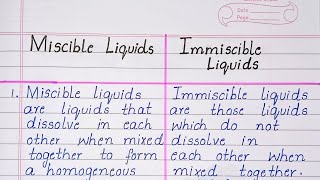 Date
Page
Miscible Liquids
Immiscible
Liquids
1. Miscible liquids
are liquids that
dissolve in each
other when mixed
together to form
a homogeneous
Immiscible liquids
are those liquids
which do not
dissolve in
each other when
mixed together.